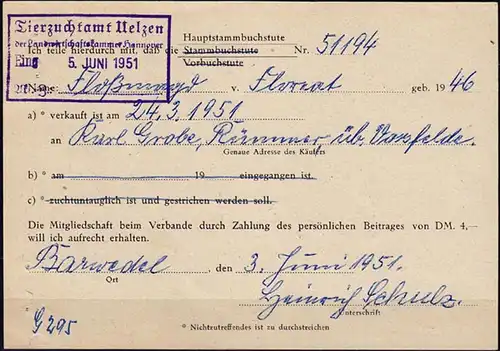 Tierzuchtamt Uelzen
der Landwirtschaftskammer Hannover
Eing. 5. JUNI 1951
Hauptstammbuchstute
Ich teile hierdurch mit, daß die Stammbuchstute Nr. 51194
Vorbuchstute
Name: Floßmagd v. Floreat geb. 1946
a) * verkauft ist am 24.3.1951
an Karl Grobe, Rümmer, üb. Vorsfelde.
Genaue Adresse des Käufers
b) * am 19 eingegangen ist.
c) * zuchtuntauglich ist und gestrichen werden soll.
Die Mitgliedschaft beim Verbande durch Zahlung des persönlichen Beitrages von DM. 4,—
will ich aufrecht erhalten.
Barwedel, den 3. Juni 1951.
Ort
Heinrich Schulz.
Unterschrift
G 295
* Nichtzutreffendes ist zu durchstreichen